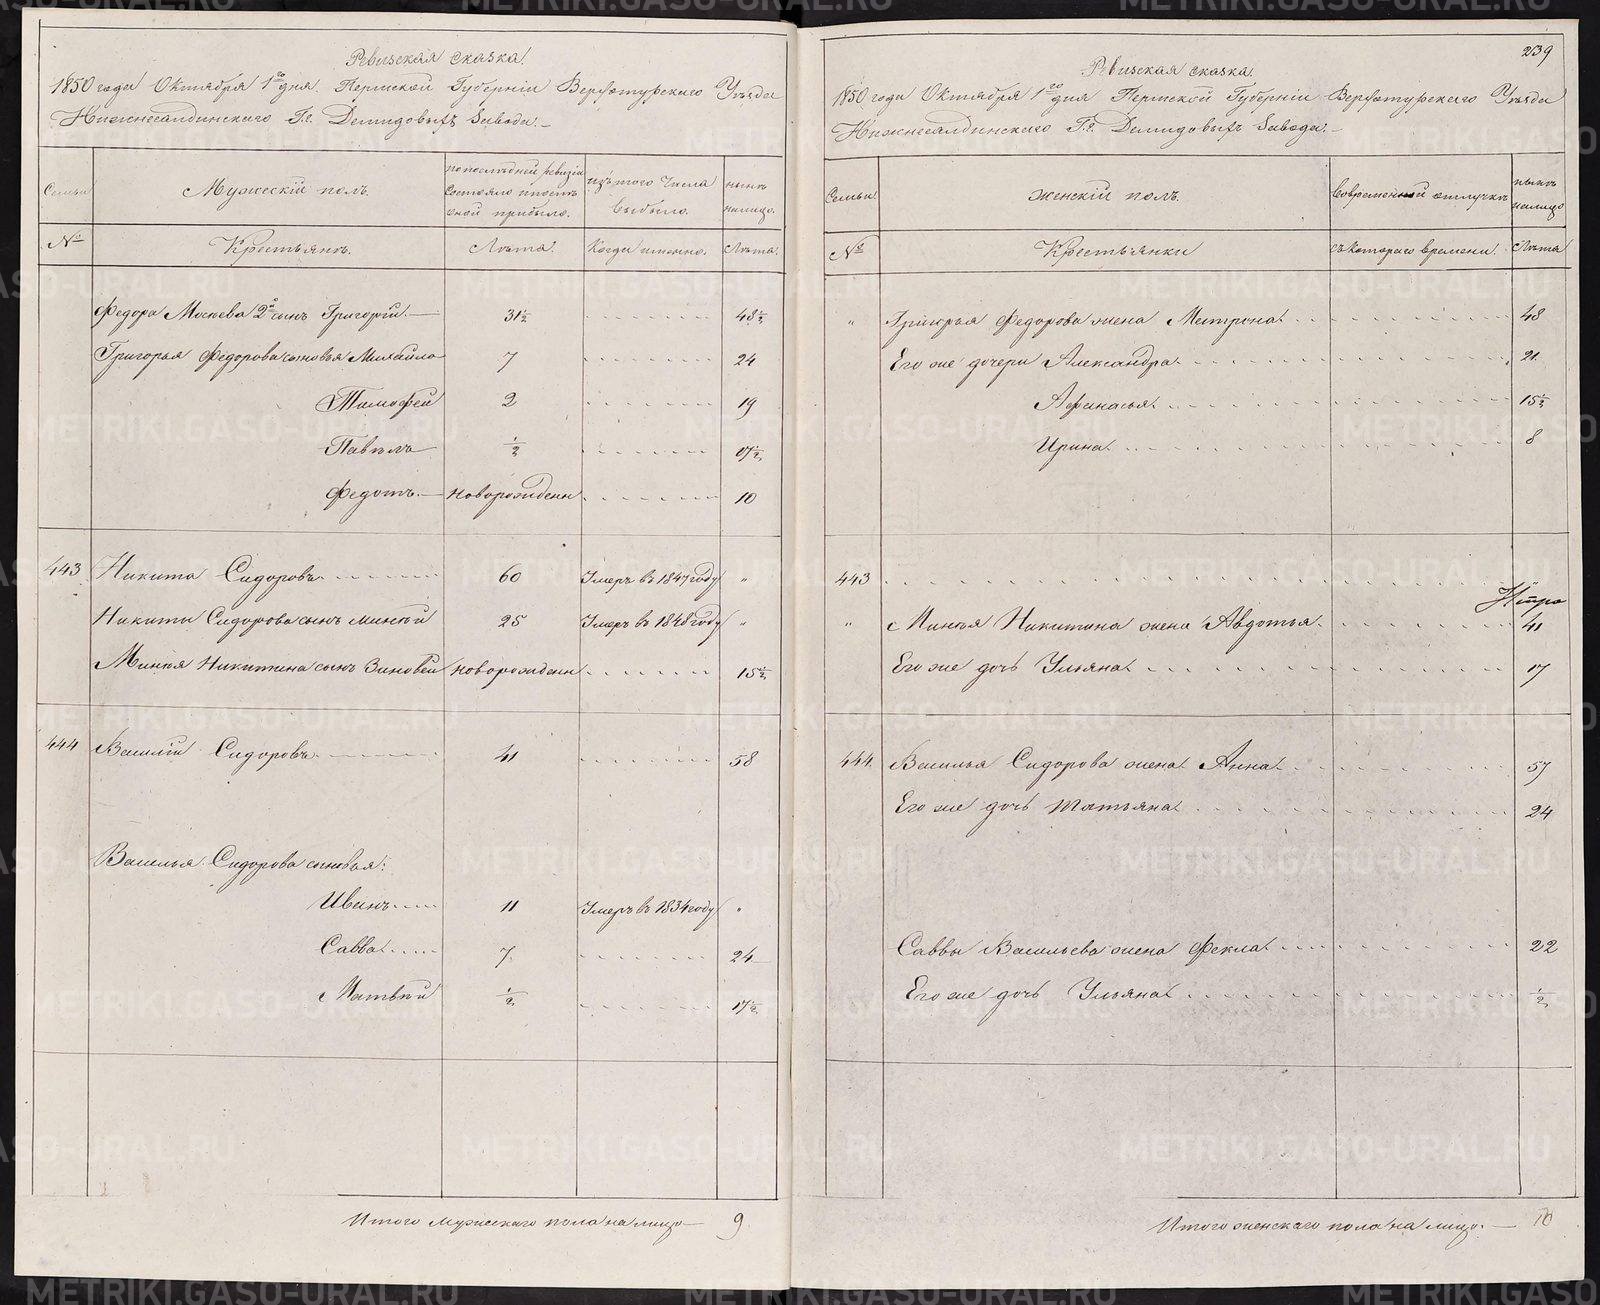 Ревизская сказка.
1850 года Октября 1го дня. Пермской Губернiи Верхотурскаго Уѣзда
Нижнесалдинскаго Г.г. Демидовыхъ Завода.
Семьи
Мужескiй полъ.
по последней ревизiи состояло и после оной прибыло.
изъ того числа выбыло.
нынѣ налицо.
№
Крестьянъ.
Лѣта.
Когда именно.
Лѣта.
Федора Мосиева 2й сынъ Григорiй. 31½ 48½
Григорья Федорова сыновья Михайло 7 24
Тимофей 2 19
Павелъ ½ 17½
Федотъ. новорожденъ 10
443 Никита Сидоровъ 60 Умеръ въ 1847 году "
Никиты Сидорова сынъ Минѣй 25 Умеръ въ 1848 году "
Минѣя Никитина сынъ Зиновей новорожденъ 15½
444 Василiй Сидоровъ 41 58
Василья Сидорова сыновья:
Иванъ 11 Умеръ въ 1834 году "
Савва 7 24
Матвѣй ½ 17½
Итого мужескаго пола на лицо 9
239
Ревизская сказка.
1850 года Октября 1го дня Пермской Губернiи Верхотурскаго Уѣзда
Нижнесалдинскаго Г.г. Демидовыхъ Завода.
Семьи.
Женскiй полъ.
Во временной отлучкѣ
нынѣ налицо
№
Крестьянки
съ котораго времени.
Лѣта
" Григорья Федорова жена Матрена 48
Его же дочери Александра 21
Афанасья. 15½
Ирина 8
443
" Минѣя Никитина жена Авдотья. 41
Его же дочь Ульяна 17
444. Василья Сидорова жена Анна 57
Его же дочь Татьяна 24
Саввы Васильева жена Фекла 22
Его же дочь Ульяна ½
Итого женскаго пола на лицо. 10
METRIKI.GASO-URAL.RU